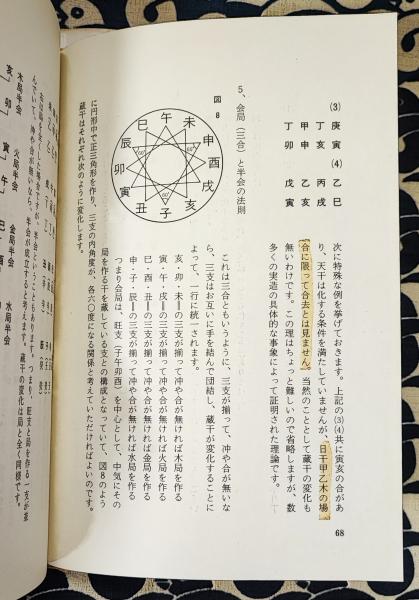 (3)
庚寅
丁亥
甲申
丁卯
(4)
乙巳
丙戌
乙亥
戊寅
次に特殊な例を挙げておきます。上記の(3)(4)共に寅亥の合があ
り、天干は化する条件を満たしていませんが、日干甲乙木の場
合に限って合去とは見ません。当然のこととして蔵干の変化も
無いわけです。この理はちょっと難しいので省略しますが、数
多くの実造の具体的な事象によって証明された理論です。
5、会局(三合)と半会の法則
図8
午
未
申
酉
戌
亥
子
丑
寅
卯
辰
巳
60°
60°
60°
これは三合ともいうように、三支が揃って、冲や合が無いな
ら、三支はお互いに手を結んで団結し、蔵干が変化することに
よって、一行に統一されます。
亥・卯・未=の三支が揃って冲や合が無ければ木局を作る
寅・午・戌=の三支が揃って冲や合が無ければ火局を作る
巳・酉・丑=の三支が揃って冲や合が無ければ金局を作る
申・子・辰=の三支が揃って冲や合が無ければ水局を作る
つまり会局は、旺支(子午卯酉)を中心として、中気にその
局を作る干を蔵している支との構成となっていて、図8のよう
に円形中で正三角形を作り、三支の内角度が、各六〇度になる関係と考えていただければよいのです。
蔵干はそれぞれ次のように変化します。
68
んでいて、冲や合が無いなら、半会が成立すると考えます。蔵干の変化は局と全く同様です。
木局半会
火局半会
金局半会
水局半会
亥 卯
寅 午